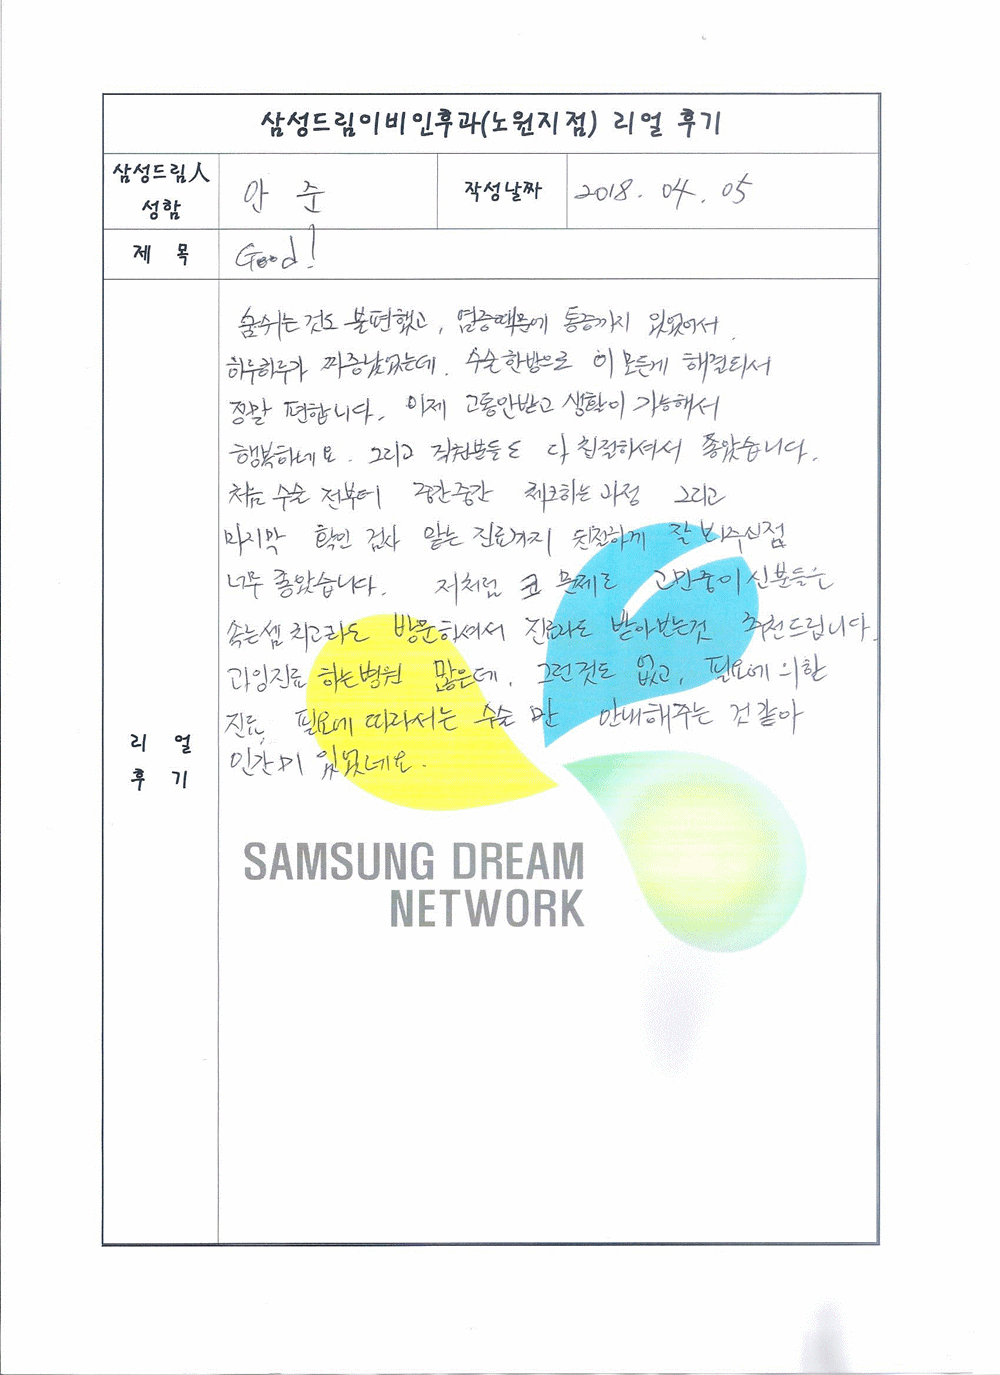 삼성드림이비인후과(노원지점) 리얼 후기
삼성드림人 성함
안 준
작성날짜
2018. 04. 05
제 목
Good!
리 얼 후 기
숨쉬는것도 불편했고, 염증때문에 통증까지 있었어서
하루하루가 짜증났었는데. 수술한방으로 이 모든게 해결되서
정말 편합니다. 이제 고통안받고 생활이 가능해서
행복하네요. 그리고 직원분들도 다 친절하셔서 좋았습니다.
처음 수술 전부터 중간중간 체크하는 과정 그리고
마지막 확인 검사 맡는 진료까지 친절하게 잘 봐주신점
너무 좋았습니다. 저처럼 코 문제로 고민중이신분들은
속는셈 치고라도 방문하셔서 진료라도 받아보는것 추천드립니다.
과잉진료 하는병원 많은데, 그런것도 없고, 필요에 의한
진료, 필요에 따라서는 수술 만 안내해주는 것 같아
인간미 있었네요.
SAMSUNG DREAM
NETWORK